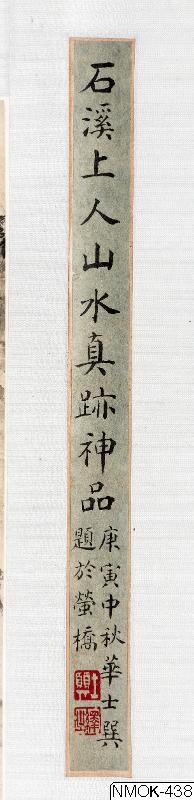 石溪上人山水真跡神品
庚寅中秋華士巽
題於螢橋
NMOK-438